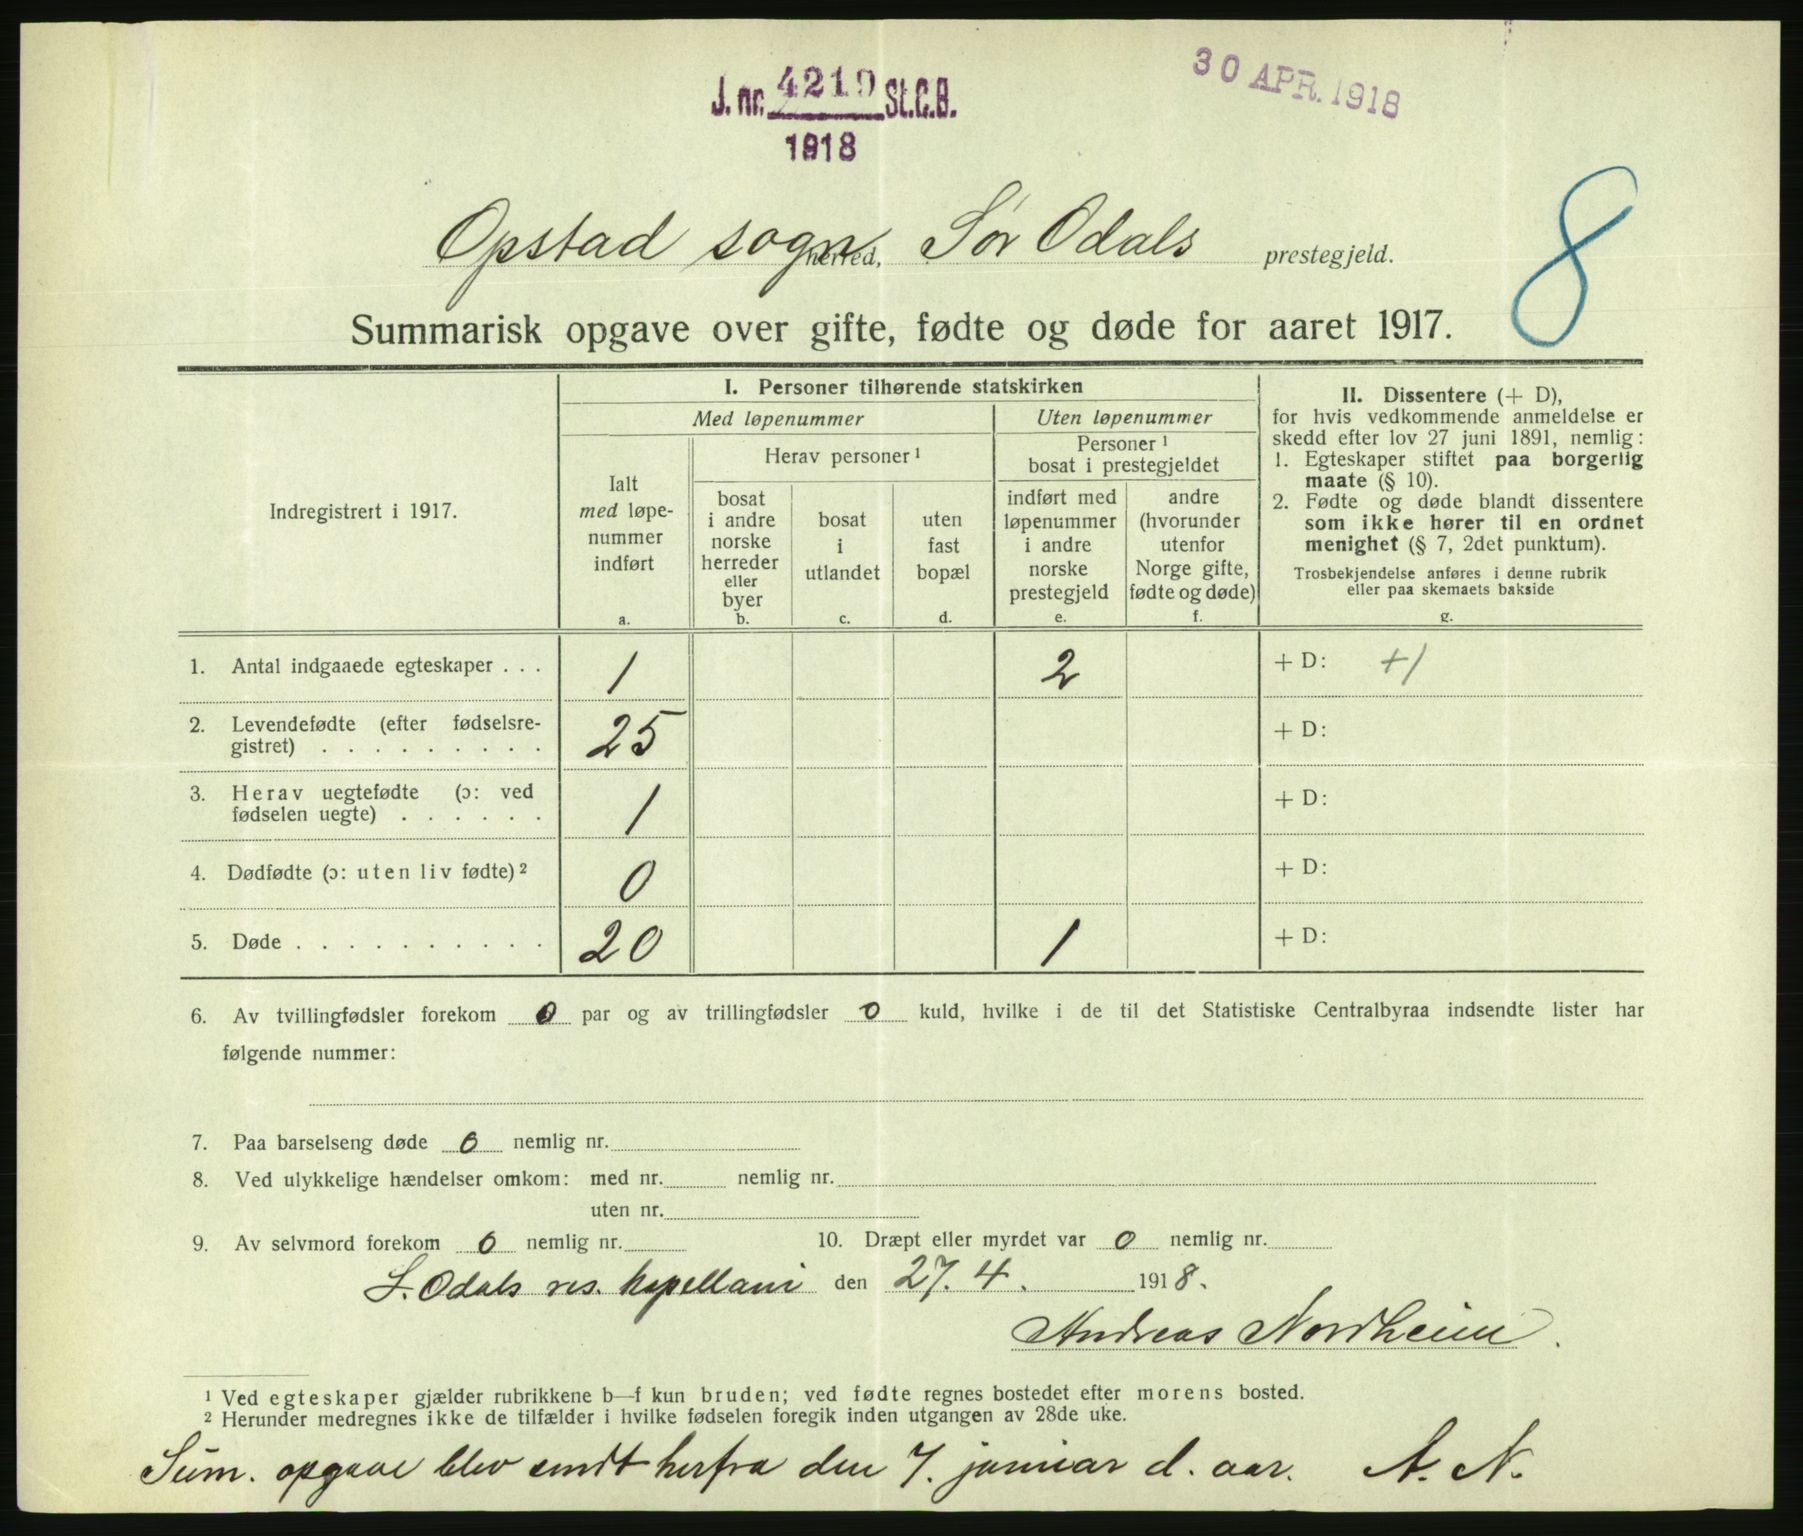 J. nr. 4219 St.C.B.
1918
30 APR. 1918
8
Opstad sogn herred, Sør Odals prestegjeld.
Summarisk opgave over gifte, fødte og døde for aaret 1917.
Indregistrert i 1917.
I. Personer tilhørende statskirken
Med løpenummer
Uten løpenummer
Ialt
med løpe-
nummer
indført
a.
Herav personer ¹
bosat
i andre
norske
herreder
eller
byer
b.
bosat
i
utlandet
c.
uten
fast
bopæl
d.
Personer ¹
bosat i prestegjeldet
indført med
løpenummer
i andre
norske
prestegjeld
e.
andre
(hvorunder
utenfor
Norge gifte,
fødte og døde)
f.
II. Dissentere (+ D),
for hvis vedkommende anmeldelse er
skedd efter lov 27 juni 1891, nemlig:
1. Egteskaper stiftet paa borgerlig
maate (§ 10).
2. Fødte og døde blandt dissentere
som ikke hører til en ordnet
menighet (§ 7, 2det punktum).
Trosbekjendelse anføres i denne rubrik
eller paa skemaets bakside
g.
1. Antal indgaaede egteskaper . . . 1 2 + D: +1
2. Levendefødte (efter fødselsre-
gistret) . . . . . . . . . 25 + D:
3. Herav uegtefødte (ɔ: ved
fødselen uegte) . . . . . . 1 + D:
4. Dødfødte (ɔ: uten liv fødte) ² 0 + D:
5. Døde . . . . . . . . . . 20 1 + D:
6. Av tvillingfødsler forekom 0 par og av trillingfødsler 0 kuld, hvilke i de til det Statistiske Centralbyraa indsendte lister har
følgende nummer:
7. Paa barselseng døde 0 nemlig nr.
8. Ved ulykkelige hændelser omkom: med nr. nemlig nr.
uten nr.
9. Av selvmord forekom 0 nemlig nr. 10. Dræpt eller myrdet var 0 nemlig nr.
S. Odals res. kapellani den 27. 4. 1918.
Andreas Nordheim.
¹ Ved egteskaper gjælder rubrikkene b—f kun bruden; ved fødte regnes bostedet efter morens bosted.
² Herunder medregnes ikke de tilfælder i hvilke fødselen foregik inden utgangen av 28de uke.
Sum. opgave blev sendt herfra den 7. januar d. aar. A. N.